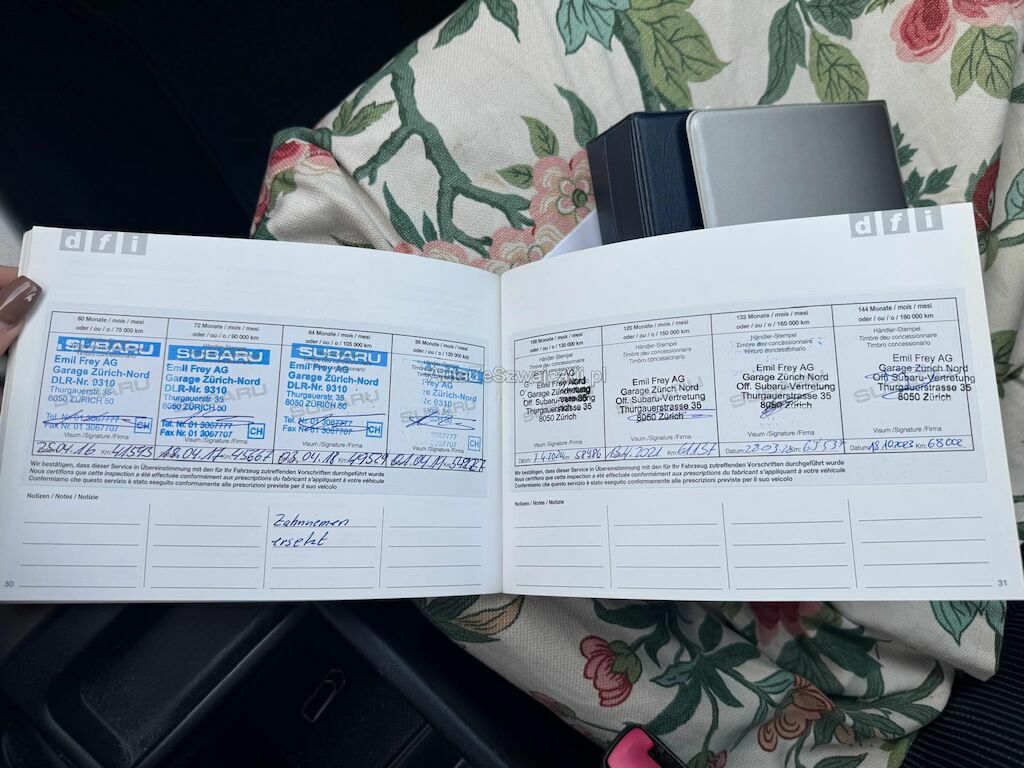 d f i
60 Monate / mois / mesi
oder / ou / o / 75 000 km
SUBARU
Emil Frey AG
Garage Zürich-Nord
DLR-Nr. 9310
Thurgauerstr. 35
8050 ZÜRICH 50
Tel. Nr. 01 3067777
Fax Nr. 01 3067707
CH
Visum /Signature /Firma
25.04.16 Km: 41595
72 Monate / mois / mesi
oder / ou / o / 90 000 km
SUBARU
Emil Frey AG
Garage Zürich-Nord
DLR-Nr. 9310
Thurgauerstr. 35
8050 ZÜRICH 50
Tel. Nr. 01 3067777
Fax Nr. 01 3067707
CH
Visum /Signature /Firma
18.04.17 Km:
84 Monate / mois / mesi
oder / ou / o / 105 000 km
SUBARU
Emil Frey AG
Garage Zürich-Nord
DLR-Nr. 9310
Thurgauerstr. 35
8050 ZÜRICH 50
Tel. Nr. 01 3067777
Fax Nr. 01 3067707
CH
Visum /Signature /Firma
04.18 49529
96 Monate / mois / mesi
oder / ou / o / 120 000 km
CH
Visum /Signature /Firma
Wir bestätigen, dass dieser Service in Übereinstimmung mit den für Ihr Fahrzeug zutreffenden Vorschriften durchgeführt wurde
Nous certifions que cette inspection a été effectuée conformément aux prescriptions du fabricant s'appliquant à votre véhicule
Confermiamo che questo servizio è stato eseguito conformemente alle prescrizioni previste per il suo veicolo
Notizen / Notes / Notizie
Zahnriemen
ersetzt
30
d f i
108 Monate / mois / mesi
oder / ou / o / 135 000 km
Händler-Stempel
Timbre du concessionnaire
Timbro concessionario
Emil Frey
Garage Zürich Nord
Off. Subaru-Vertretung
Thurgauerstrasse 35
Visum /Signature /Firma
Datum: Km: 58796
120 Monate / mois / mesi
oder / ou / o / 150 000 km
Händler-Stempel
Timbre du concessionnaire
Timbro concessionario
Emil Frey AG
Garage Zürich Nord
Off. Subaru-Vertretung
Thurgauerstrasse 35
8050 Zürich
Visum /Signature /Firma
2021 Km:
132 Monate / mois / mesi
oder / ou / o / 165 000 km
Händler-Stempel
Timbre du concessionnaire
Timbro concessionario
Emil Frey AG
Garage Zürich Nord
Off. Subaru-Vertretung
Thurgauerstrasse 35
8050 Zürich
Visum /Signature /Firma
144 Monate / mois / mesi
oder / ou / o / 180 000 km
Händler-Stempel
Timbre du concessionnaire
Timbro concessionario
Emil Frey AG
Garage Zürich Nord
Off. Subaru-Vertretung
Thurgauerstrasse 35
8050 Zürich
Visum /Signature /Firma
Datum: 18.10.2023 Km: 68002
Wir bestätigen, dass dieser Service in Übereinstimmung mit den für Ihr Fahrzeug zutreffenden Vorschriften durchgeführt wurde
Nous certifions que cette inspection a été effectuée conformément aux prescriptions du fabricant s'appliquant à votre véhicule
Confermiamo che questo servizio è stato eseguito conformemente alle prescrizioni previste per il suo veicolo
Notizen / Notes / Notizie
31